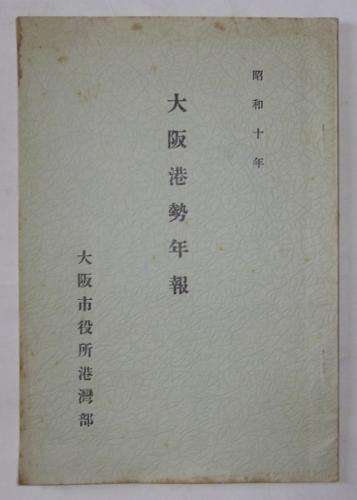 昭和十年
大阪港勢年報
大阪市役所港灣部